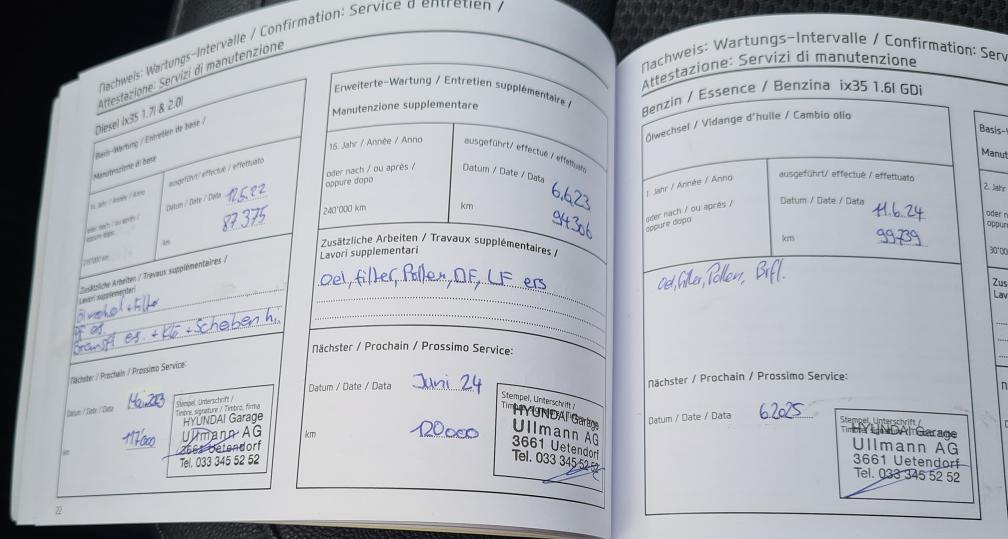 Nachweis: Wartungs-Intervalle / Confirmation: Service d'entretien /
Attestazione: Servizi di manutenzione
Diesel ix35 1.7l & 2.0l
Basis-Wartung / Entretien de base /
Manutenzione di base
ausgeführt/ effectué / effettuato
Datum / Date / Data 12.5.22
km 87.375
Zusätzliche Arbeiten / Travaux supplémentaires /
Lavori supplementari
Ölwechsel + Filter
Nächster / Prochain / Prossimo Service:
Datum / Date / Data Mai 2023
km 117'000
Stempel, Unterschrift /
Timbre, signature / Timbro, firma
HYUNDAI Garage
Ullmann AG
3661 Uetendorf
Tel. 033 345 52 52
22
Erweiterte-Wartung / Entretien supplémentaire /
Manutenzione supplementare
16. Jahr / Année / Anno
oder nach / ou après /
oppure dopo
240'000 km
ausgeführt/ effectué / effettuato
Datum / Date / Data 6.6.23
km 94306
Zusätzliche Arbeiten / Travaux supplémentaires /
Lavori supplementari
Oel, filter, Pollen, DF, LF ers
Nächster / Prochain / Prossimo Service:
Datum / Date / Data Juni 24
km 120000
Stempel, Unterschrift /
HYUNDAI Garage
Ullmann AG
3661 Uetendorf
Tel. 033 345 52 52
Nachweis: Wartungs-Intervalle / Confirmation: Serv
Attestazione: Servizi di manutenzione
Benzin / Essence / Benzina ix35 1.6l GDi
Ölwechsel / Vidange d'huile / Cambio olio
1. Jahr / Année / Anno
oder nach / ou après /
oppure dopo
ausgeführt/ effectué / effettuato
Datum / Date / Data 11.6.24
km 99739
Oel, filter, Pollen, Brfl.
Nächster / Prochain / Prossimo Service:
Datum / Date / Data 6.2025
Stempel, Unterschrift /
HYUNDAI Garage
Ullmann AG
3661 Uetendorf
Tel. 033 345 52 52
Basis-
Manut
2. Jahr
oder n
oppure
30'00
Zus
Lav